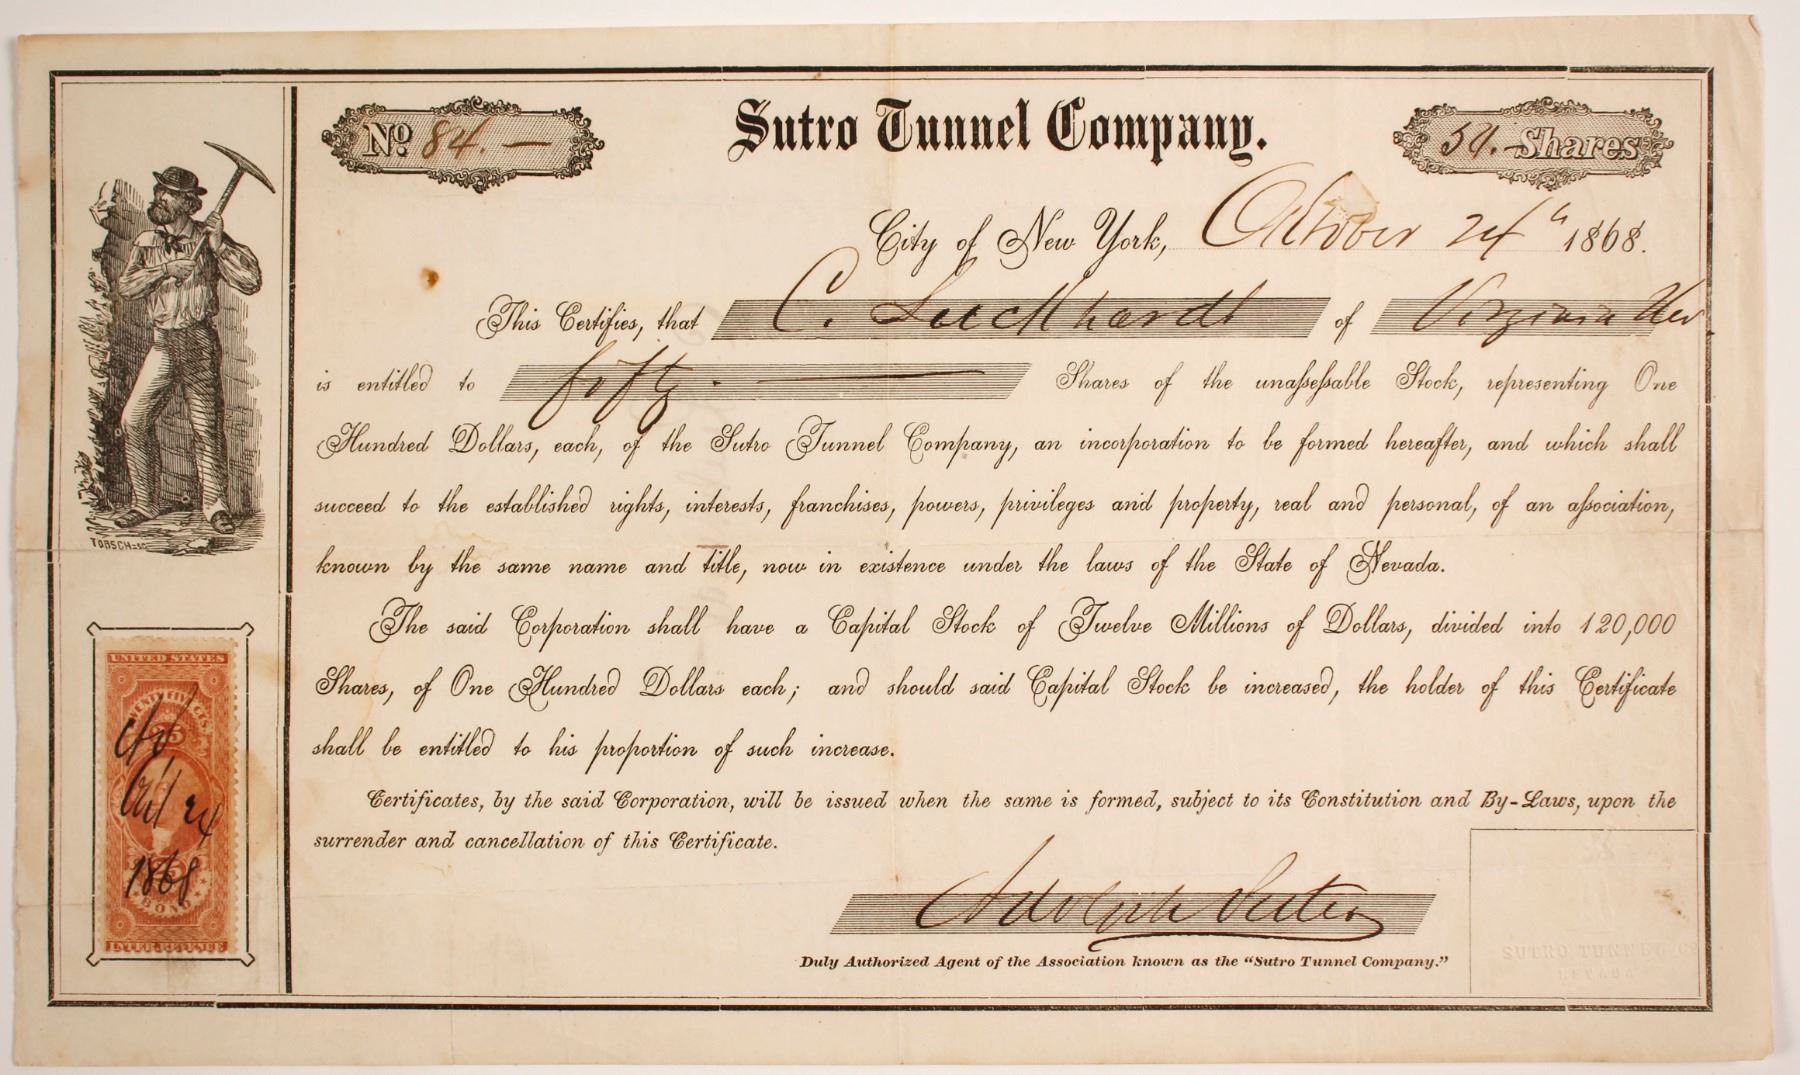 Nº 84. —
Sutro Tunnel Company.
50. Shares
City of New York, October 24th 1868.
This Certifies, that C. Luckhardt of Virginia Nev
is entitled to fifty. — Shares of the unaſseſsable Stock, representing One
Hundred Dollars, each, of the Sutro Tunnel Company, an incorporation to be formed hereafter, and which shall
succeed to the established rights, interests, franchises, powers, privileges and property, real and personal, of an aſsociation,
known by the same name and title, now in existence under the laws of the State of Nevada.
The said Corporation shall have a Capital Stock of Twelve Millions of Dollars, divided into 120,000
Shares, of One Hundred Dollars each; and should said Capital Stock be increased, the holder of this Certificate
shall be entitled to his proportion of such increase.
Certificates, by the said Corporation, will be issued when the same is formed, subject to its Constitution and By-Laws, upon the
surrender and cancellation of this Certificate.
Adolph Sutro
Duly Authorized Agent of the Association known as the "Sutro Tunnel Company."
TOBSCH=SC
UNITED STATES
TWENTY FIVE CTS.
25
Oct 24
1868
25
BOND
INTER. REVENUE
SUTRO TUNNEL CO.
NEVADA